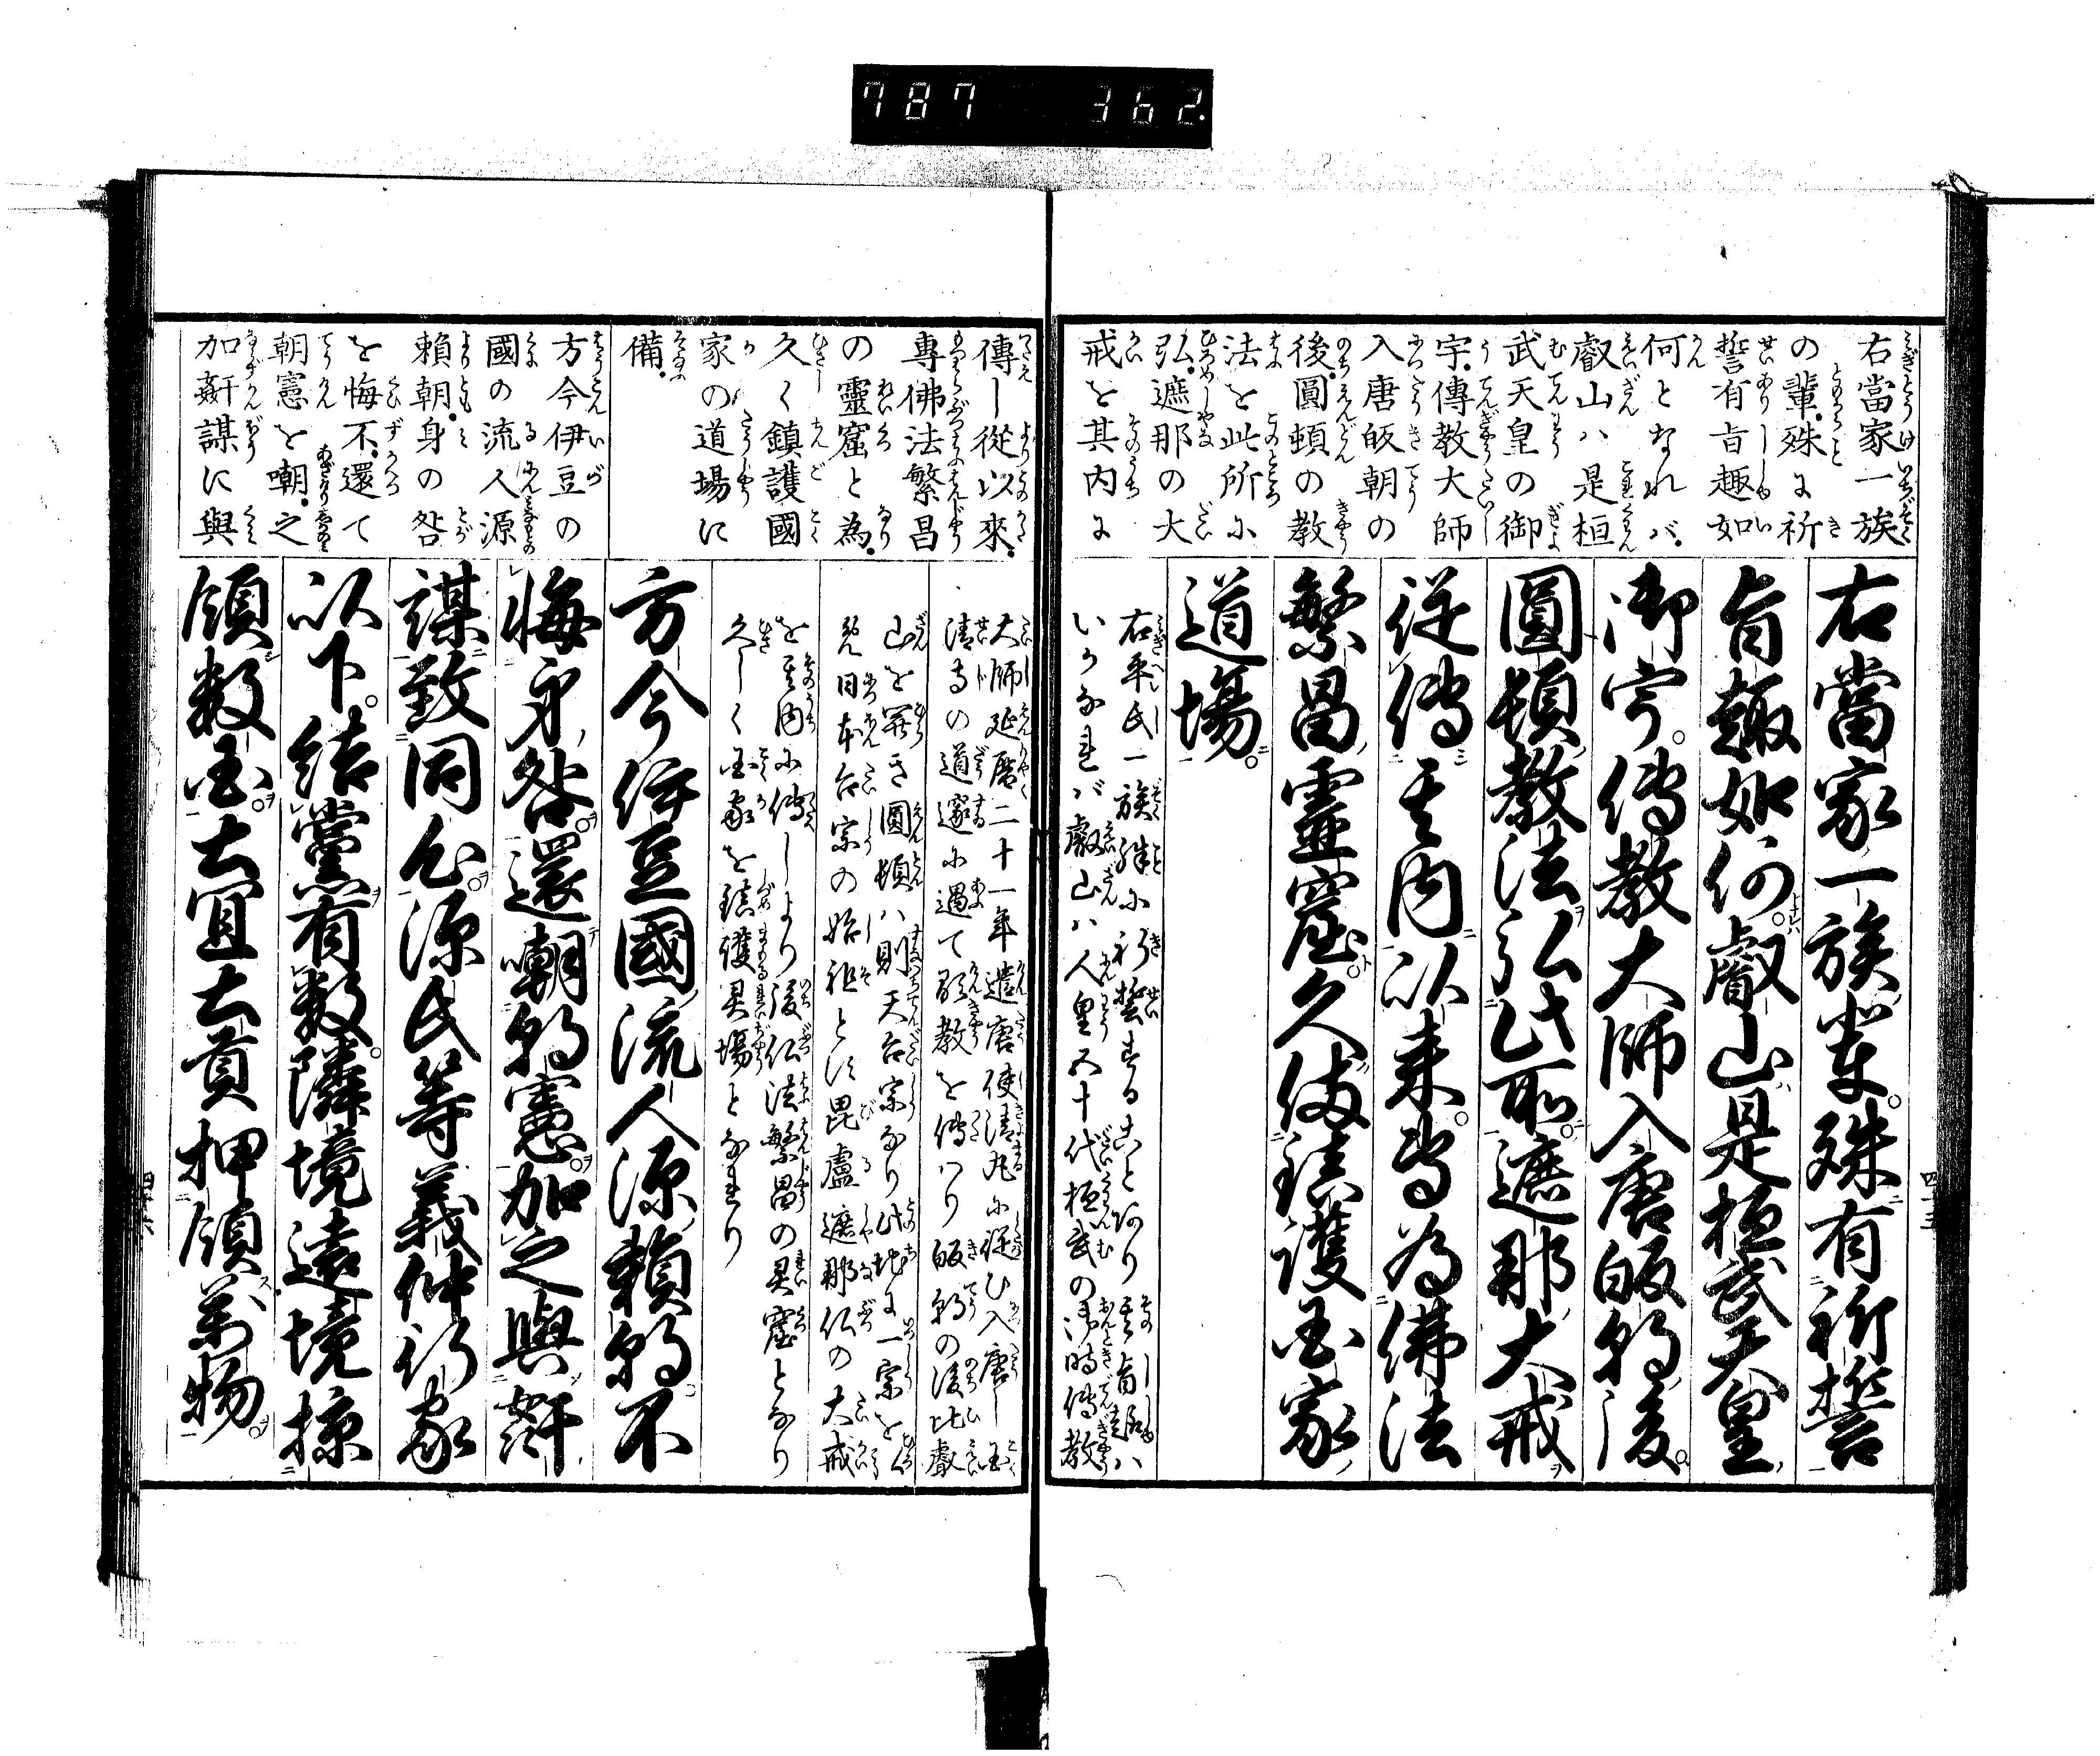 787 362
右當家一族
の輩。殊に祈
誓有旨趣如
何となれバ。
叡山ハ是桓
武天皇の御
宇。傳教大師
入唐皈朝の
後。圓頓の教
法を此所に
弘。遮那の大
戒を其内に
右當家一族輩。殊有祈誓
旨趣如何。叡山是桓武天皇
御宇。傳教大師入唐皈朝後。
圓頓教法弘此所。遮那大戒
従傳其内以来。専為佛法
繁昌霊窟。久備鎮護国家
道場。
右平氏一族殊に祈誓することあり其旨趣ハ
いかなれバ叡山ハ人皇五十代桓武の御時傳教
四十五
傳し從以來。
專佛法繁昌
の靈窟と為。
久く鎮護國
家の道場に
備。
方今伊豆の
國の流人源
賴朝。身の咎
を悔不。還て
朝憲を嘲。之
加奸謀に與
大師延暦二十一年遣唐使清丸に従ひ入唐し国
清寺の道邃に遇て顕教を傳ハり皈朝の後比叡
山を開き圓頓ハ則天台宗なり此地に一宗を
日本台宗の始祖とす毘盧遮那仏の大戒
を其内に傳しより後仏法繁昌の霊窟となり
久しく国家を鎮護霊場となれり
方今伊豆國流人源頼朝。不
悔身咎。還嘲朝憲。加之與奸
謀致同心。源氏等義仲行家
以下。結黨有数。隣境遠境掠
領数国。土宜土貢押領萬物。
四十六